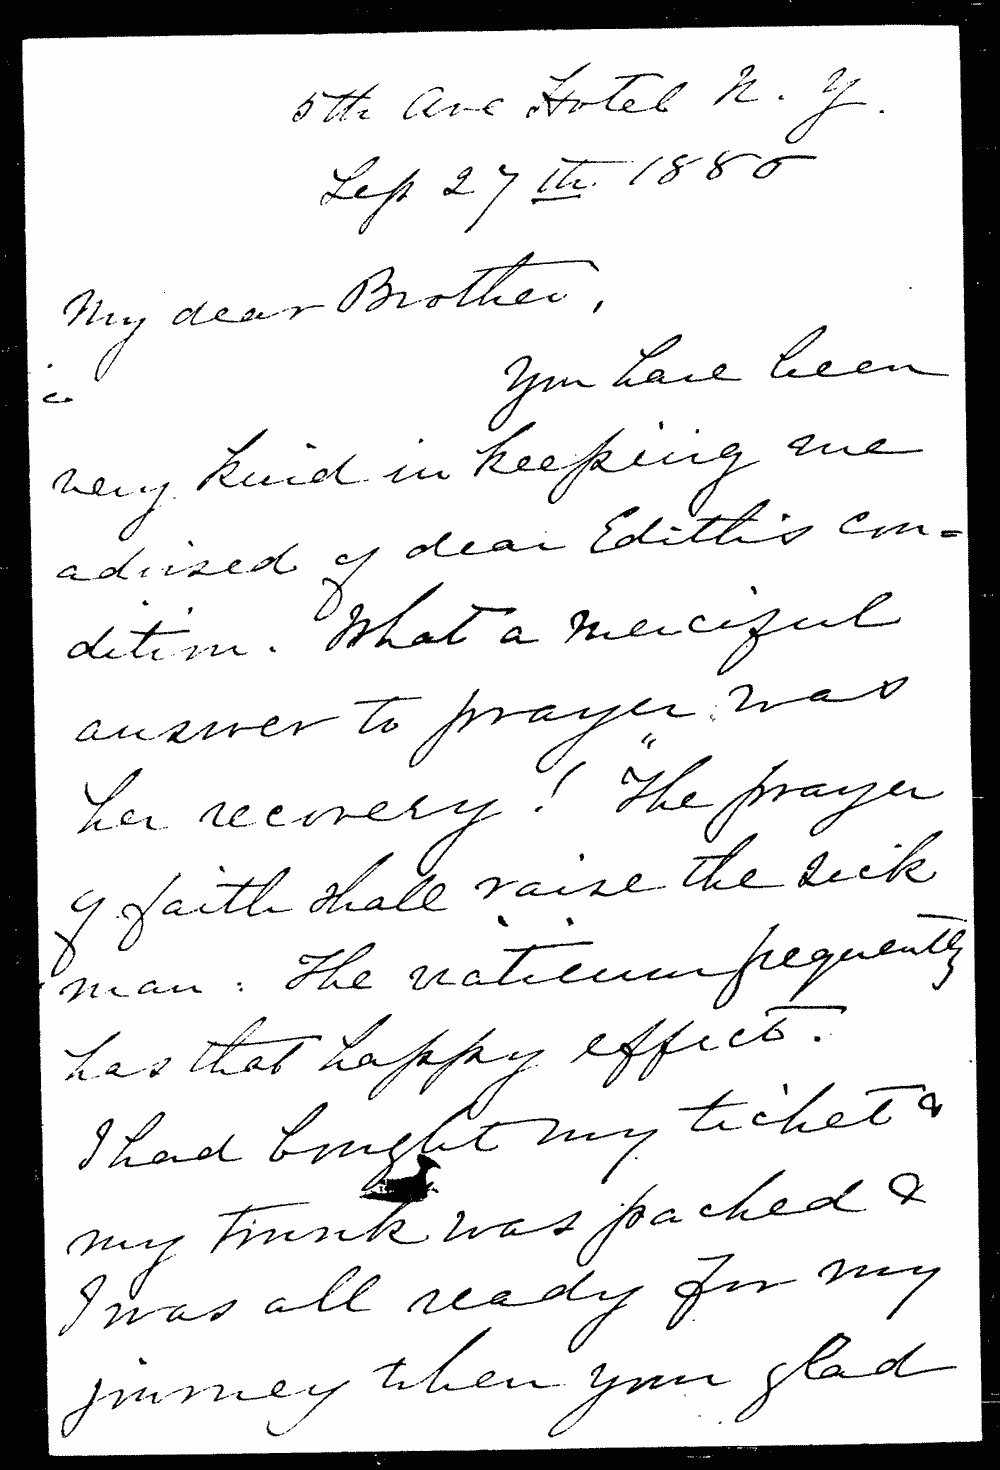 5th Ave Hotel N. Y.
Sep 27th 1880
My dear Brother,
You have been
very kind in keeping me
advised of dear Edith's con=
dition. What a merciful
answer to prayer was
her recovery! "The prayer
of faith shall raise the sick
man. The viaticum frequently
has that happy effect.
I had bought my ticket &
my trunk was packed &
I was all ready for my
journey when your glad